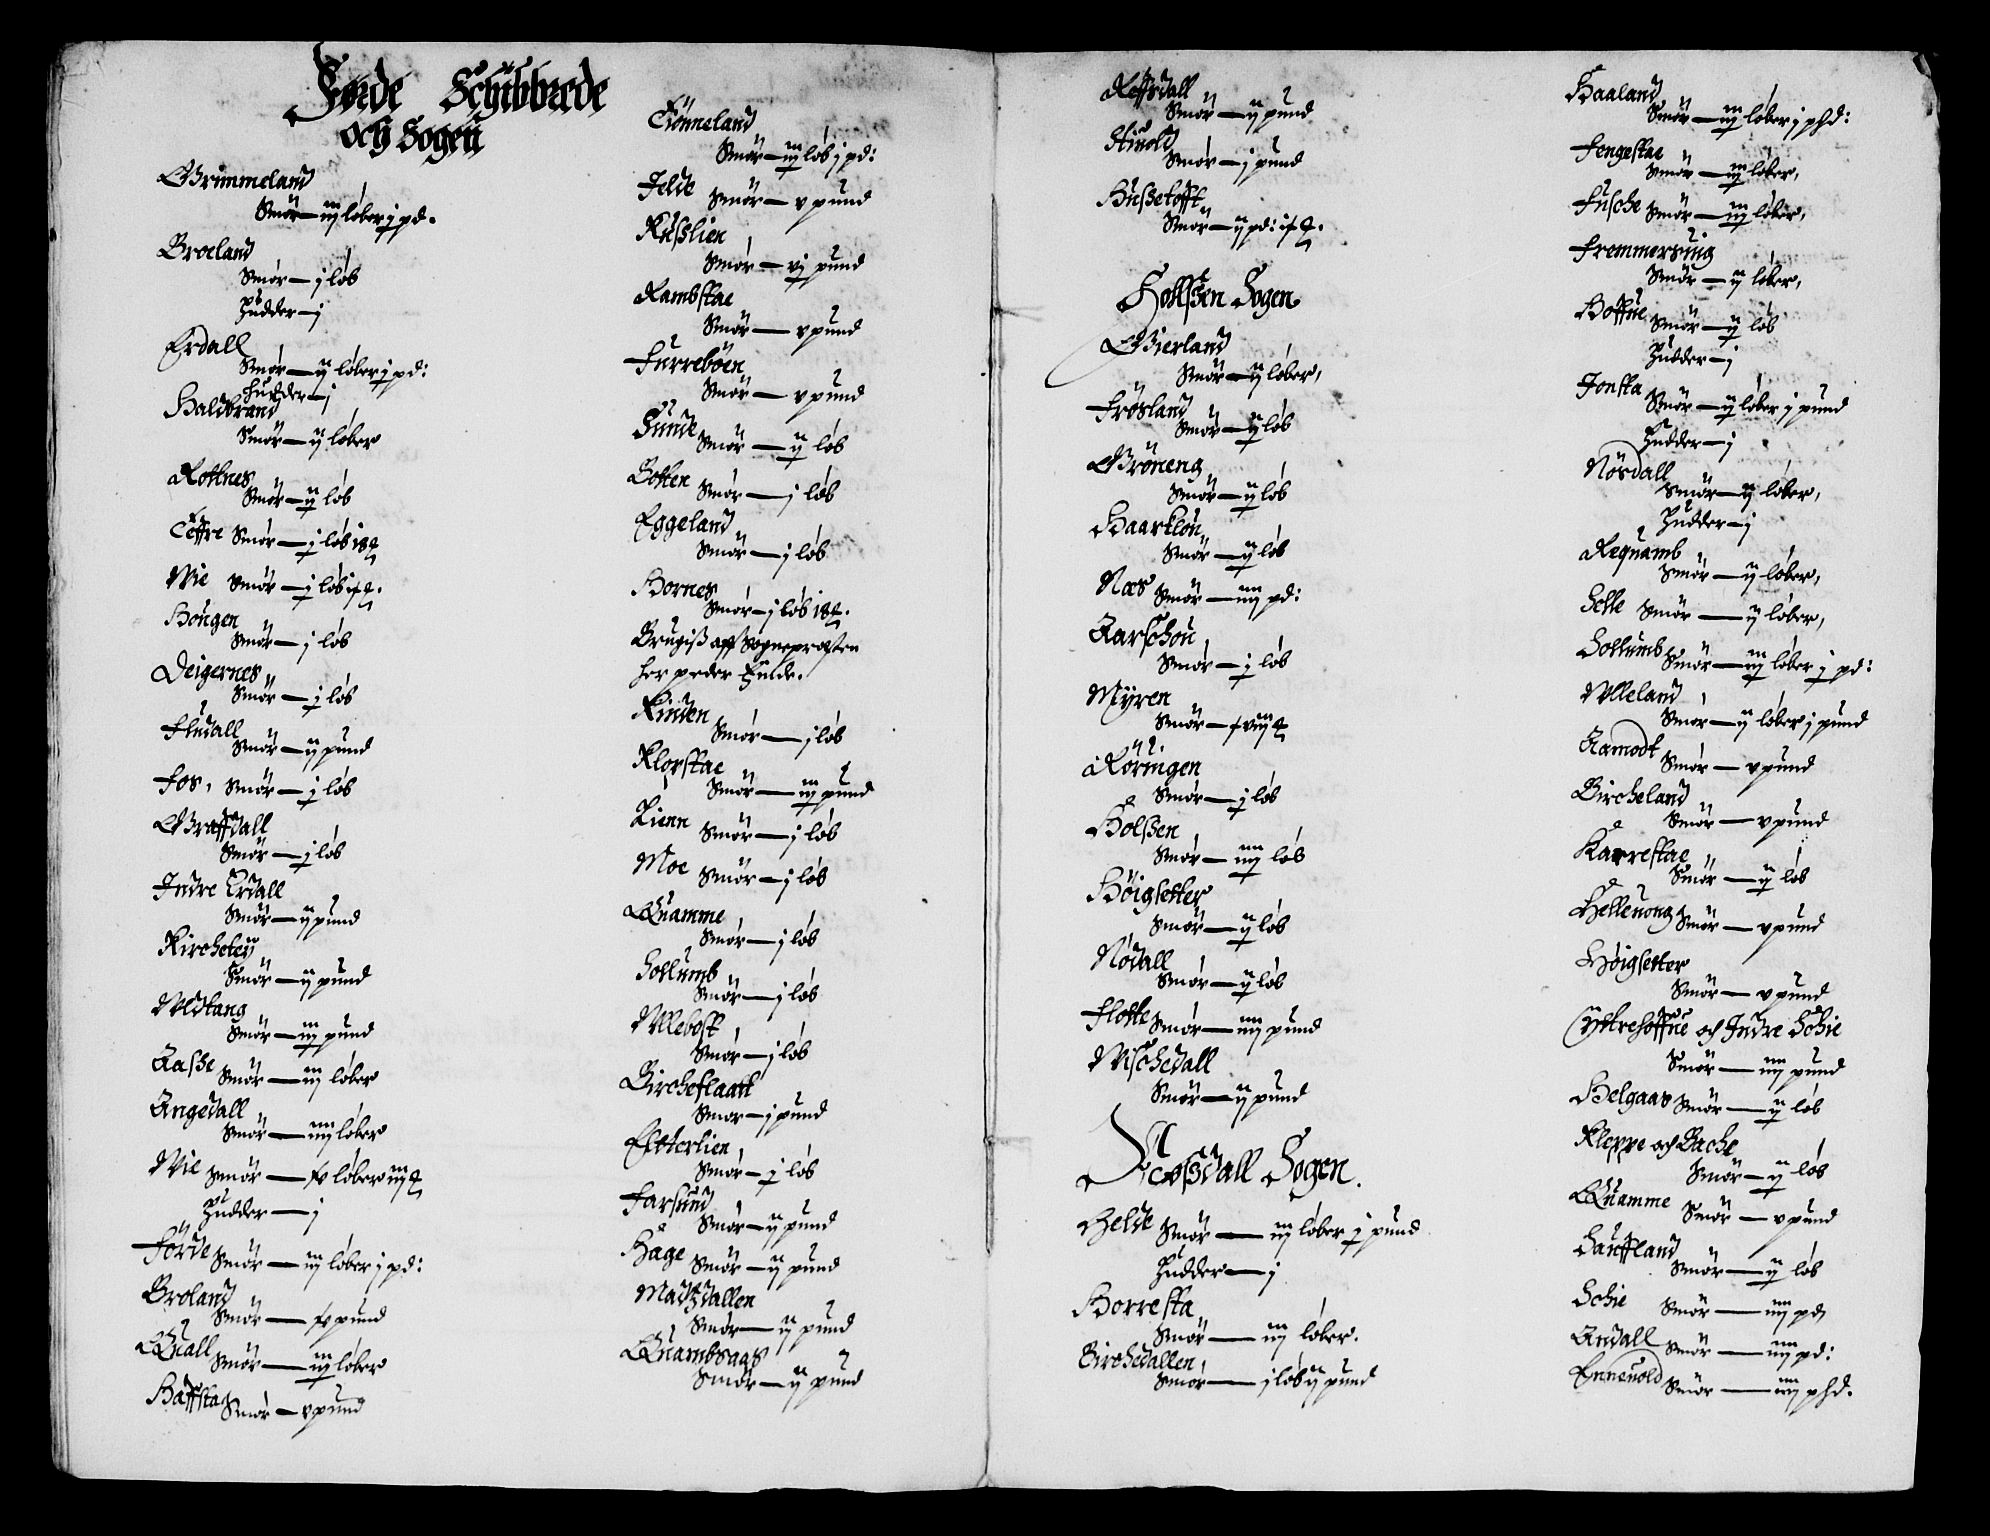 Førde Schibbrede
och Sogen
Grimmeland
Smør — iij løber j pd.
Groeland
Smør — j løb
Hudder — j
Erdall
Smør — ij løber j pd:
Hudder — j
Haldbrand
Smør — ij løber
Rottnes
Smør — ij løb
Teffre Smør — j løb 18
Wie Smør — j løb
Hougen
Smør — j løb
Deigernes
Smør — j løb
Fludall
Smør — ij pund
Fos, Smør — j løb
Graffdall
Smør — j løb
Indre Erdall
Smør — ij pund
Kircheteÿ
Smør — ij pund
Vldtang
Smør — iij pund
Aasße Smør — iij løber
Angedall
Smør — iiij løber
Wie Smør — løber
Hudder — j
Førde Smør — iij løber j pd:
Broland
Smør — pund
Quall Smør — iij løber
Haffsta Smør — v pund
Tiönneland
Smør — iij løb j pd:
Jelde Smør — v pund
Kußlien
Smør — vj pund
Rambstae
Smør — v pund
Furrebøen
Smør — v pund
Sunde Smør — ij løb
Botten Smør — j løb
Eggeland
Smør — j løb
Hornes
Smør — j løb 18
Brugiß aff Sognepræsten
her peder Finde.
Kinden
Smør — j løb
Klopstae
Smør — iij pund
Lienn Smør — j løb
Moe Smør — j løb
Quamme
Smør — j løb
Sollumb
Smør — j løb
Vllebost
Smør — j løb
Bircheflaatt
Smør — j pund
Etterlien
Smør — j løb
Farsund
Smør — ij pund
Hage Smør — ij pund
Madtzdallen
Smør — ij pund
Quambsaas
Smør — ij pund
Reffsdall
Smør — ij pund
Stinold
Smør — j pund
Hußetofft
Smør — ij pd:
Hollßen Sogen
Gierland
Smør — ij løber,
Frøsland
Smør — ij løb
Grøneng
Smør — ij løb
Haarklou
Smør — ij løb
Næs Smør — iiij pd:
Aarschou
Smør — j løb
Mÿren
Smør —
Røringen
Smør — j løb
Holßen
Smør — iiij løb
Høigsetter
Smør — ij løb
Nødall
Smør — ij løb
Flotte Smør — iiij pund
Vischedall
Smør — ij pund
Sogen.
Helde Smør — iij løber j pund
Hudder — j
Horresta
Smør — iij løber.
Birchedallen
Smør — j løb ij pund
Haaland
Smør — iij løber j phd:
Fengestae
Smør — iij løber,
Fusche Smør — iij løber,
Fremmersuig
Smør — ij løber,
Hoffue
Smør — ij løb
Hudder — j
Jonsta
Smør — ij løber j pund
Hudder — j
Nøsdall
Smør — ij løber,
Hudder — j
Requamb
Smør — ij løber,
Selle Smør — ij løber,
Sollumb Smør — iij løber j pd:
Vlleland
Smør — ij løber j pund
Aamodt Smør — v pund
Bircheland
Smør — v pund
Karrestae
Smør — ij løb
Helleuong Smør — v pund
Høigsetter
Smør — v pund
Ÿttrehoffue och Indre Schie
Smør — iiij pund
Helgaas Smør — ij løb
Kleppe och Bache
Smør — ij løb
Quamme Smør — v pund
Sauffland
Smør — ij løb
Schie Smør — iiij pd
Andall Smør — iiij pd:
Enneuold Smør — iiij phd.